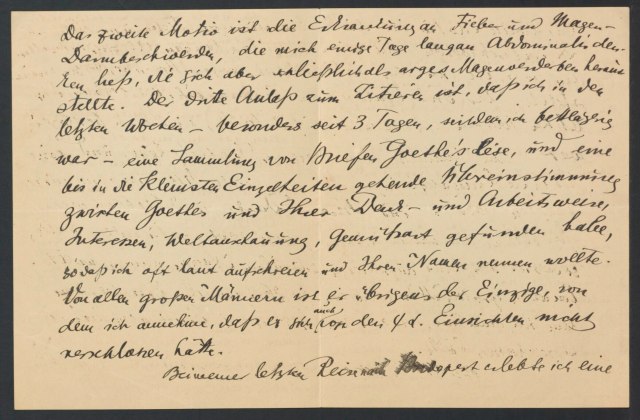 Das zweite Motiv ist die Erkrankung an Fieber und Magen-
Darmbeschwerden, die mich einige Tage lang an Abdominalis den-
ken ließ, die sich aber schließlich als arges Magenverderben heraus
stellte. Der dritte Anlaß zum Zitieren ist, daß ich in den
letzten Wochen – besonders seit 3 Tagen, seitdem ich bettlägerig
war – eine Sammlung von Briefen Goethe's lese, und eine
bis in die kleinsten Einzelheiten gehende Übereinstimmung
zwischen Goethes und Ihrer Denk- und Arbeitsweise,
Interessen, Weltanschauung, Gemütsart gefunden habe,
sodaß ich oft laut aufschreien und Ihren Namen nennen wollte.
Von allen großen Männern ist er übrigens der Einzige, von
dem ich annehme, daß er sich auch von den Einsichten nicht
verschlossen hätte.
Bei meiner letzten Reise nach Budapest erlebte ich eine